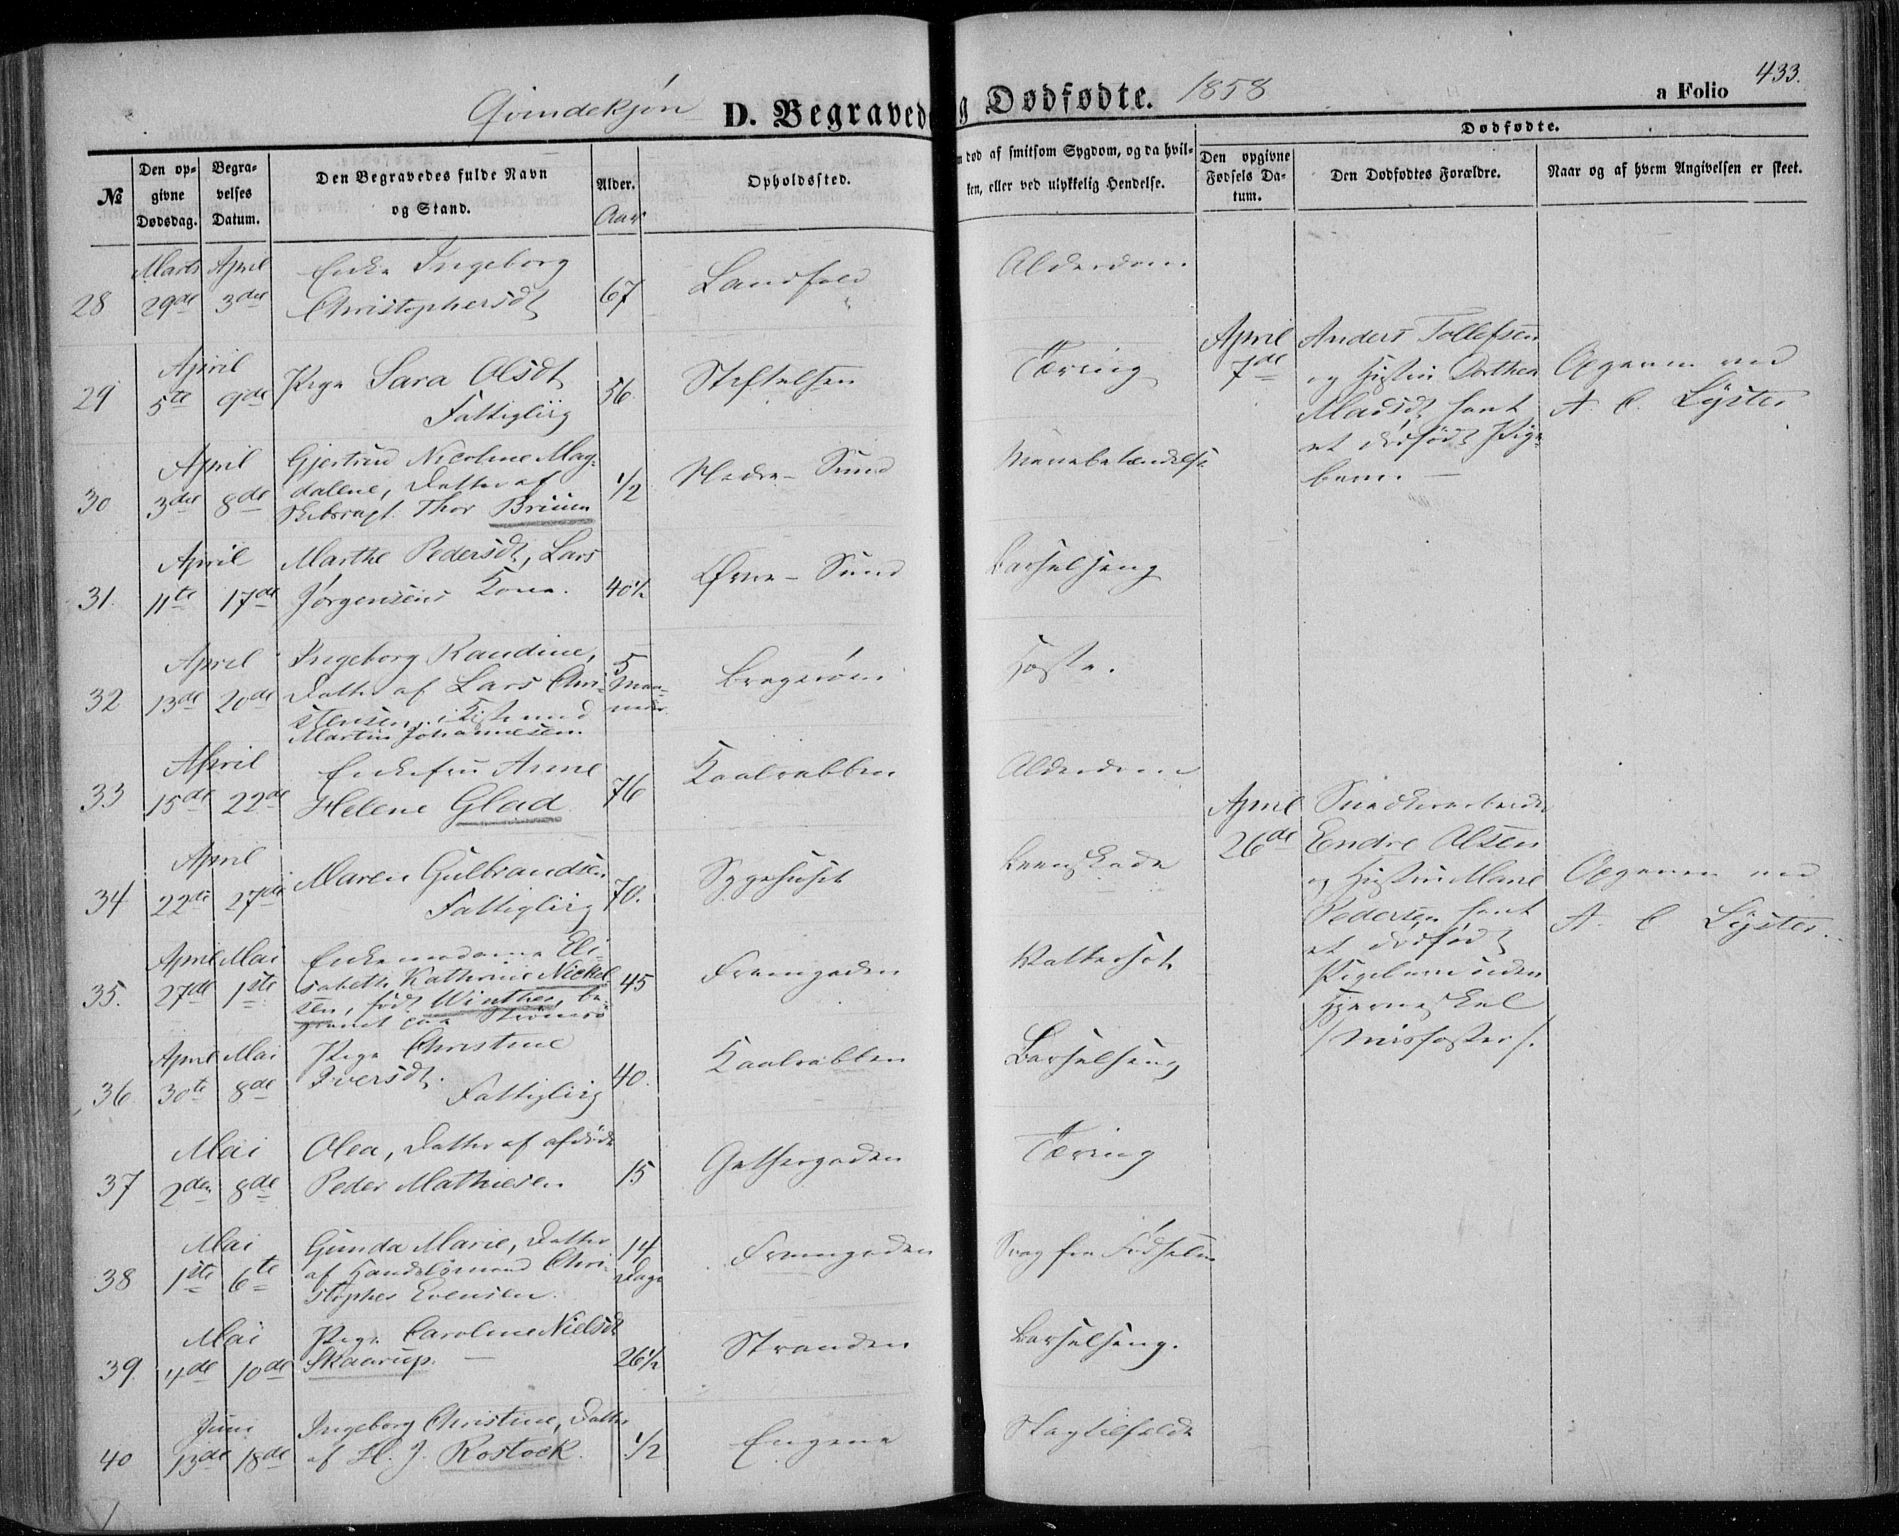 Qvindekjøn D. Begravede og Dødfødte. 1858 a Folio 433.
№
Den opgivne Dødsdag.
Begravelses Datum.
Den Begravedes fulde Navn og Stand.
Alder.
Aar
Opholdssted.
død af smitsom Sygdom, og da hvilken, eller ved ulykkelig Hendelse.
Dødfødte.
Den opgivne Fødsels Datum.
Den Dødfødtes Forældre.
Naar og af hvem Angivelsen er skeet.
28 Marts 29de April 3die Enke Ingeborg
Christophersdt 67 Landfald Alderdom.
29 April 5te 9de Pige Sara Olsdt
Fattiglig 56. Stiftelsen Tæring
April 7de Anders Tollefsen
og Hustru Dorthea
Madsdt havt
et dødfødt Pige-
barn. —
Opgaven ved
A. C. Lyster
30 April 3die 8de Gjertrud Nicoline Mag-
dalene, Datter af
Skibscapt. Thor Bruun 1/2 Nedre-Sund Mavebetændelse
31. April 11te 17de Marthe Pedersdt, Lars
Jørgensens Kone. 40 1/2 Øvre-Sund Barselseng
32 April 13de 20de Ingeborg Randine,
Datter af Lars Chri-
stensen, i Kiste med
Martin Johannesen. 5 Maa-
neder. Bragerøen Hoste.
33 April 15de 22de Enkefru Anne
Helene Glad 76 Kaalrabben Alderdom
34 April 22de 27de Maren Gulbrandsen
Fattiglig 70. Sygehuset Beenskade
April 26de Snedkerarbeider
Endre Olsen
og Hustru Marie
Pedersen havt
et dødfødt
Pigebarn uden
Hjerneskal
/misfoster/.
Opgaven ved
A. C. Lyster.
35. April 27de Mai 1ste Enkemadame Eli-
sabeth Kathrine Nickel
sen, født Winther, be-
gravet paa Strømsø 45 Fremgaden Vattersot
36 April 30te Mai 8de Pige Christine
Iversdt. Fattiglig 40. Kaalrabben Barselseng
37 Mai 2den 8de Olea, Datter af afdøde
Peder Mathiesen 15 Gethergaden Tæring
38 Mai 1ste 6te Gunda Marie, Datter
af Handelsmand Chri-
stopher Evensen. 14 Dage Fremgaden Svag fra Fødselen
39 Mai 4de 10de Pige Caroline Nielsdt
Skaarup. — 26 1/2 Stranden Barselseng.
40 Juni 13de 18de Ingeborg Christine, Datter
af H. J. Rostock. 1/2 Engene Slagtilfælde